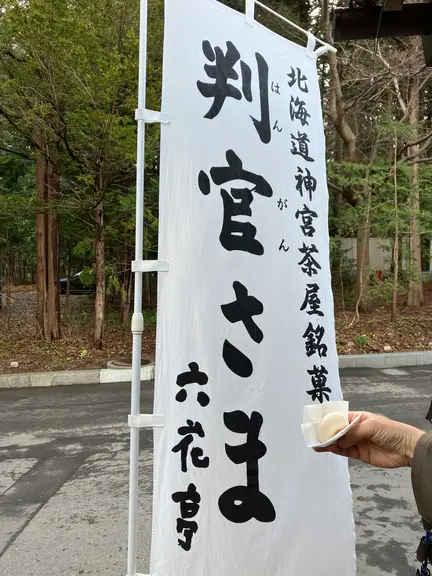 北海道神宮茶屋銘菓
判官さま
はんがん
六花亭